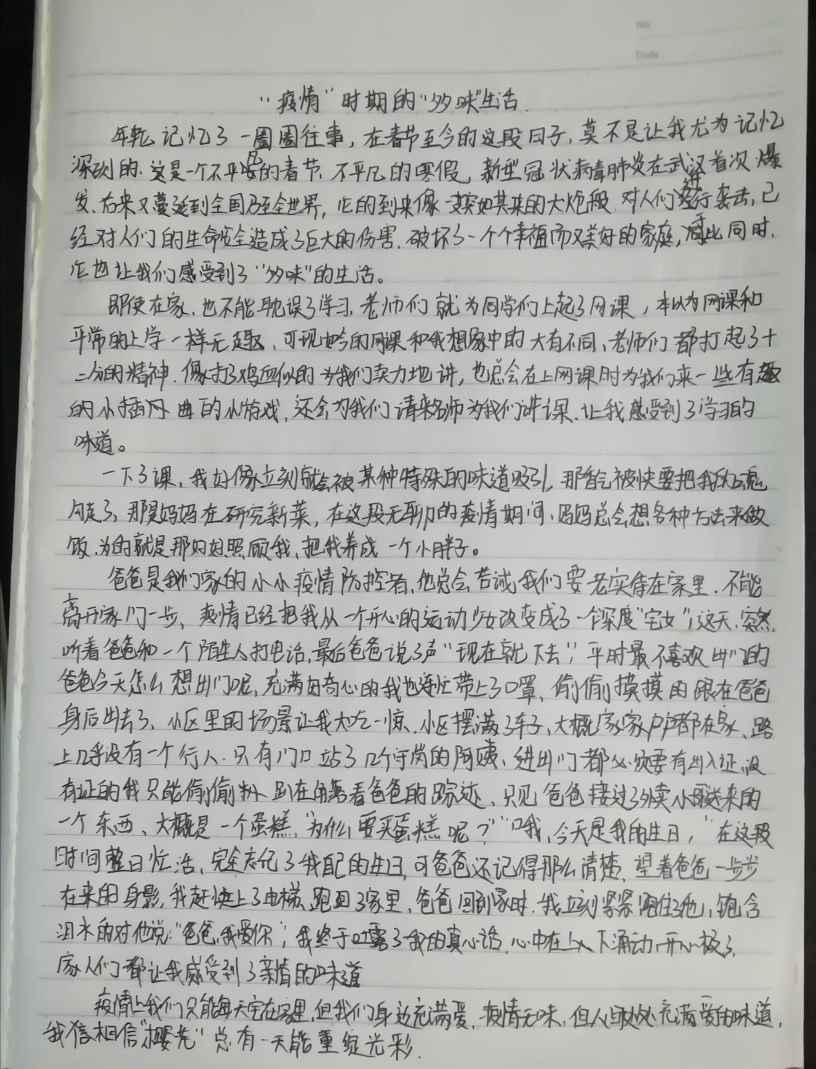 “疫情”时期的“多味”生活
年轮记忆了一圈圈往事，在春节至今的这段日子，莫不是让我尤为记忆
深刻的.这是一个不平凡的春节，不平凡的寒假，新型冠状病毒肺炎在武汉首次爆
发.后来又蔓延到全国乃至全世界，它的到来像一支突如其来的大炮般对人们进行袭击，已
经对人们的生命安全造成了巨大的伤害.破坏了一个个幸福而又美好的家庭，与此同时.
它也让我们感受到了“多味”的生活。
即使在家.也不能耽误了学习.老师们就为同学们上起了网课，本以为网课和
平常的上学一样无趣，可现如今的网课和我想象中的大有不同，老师们都打起了十
二分的精神.像打了鸡血似的为我们卖力地讲，也总会在上网课时为我们来一些有趣
的小插曲的小游戏，还会为我们请来名师为我们讲课.让我感受到了学习的
味道。
一下了课，我好像立刻就会被某种特殊的味道吸引.那香气被快要把我的魂
勾走了，那是妈妈在研究新菜，在这段无聊的疫情期间，妈妈总会想各种方法来做
饭.为的就是那好好照顾我，把我养成一个小胖子。
爸爸是我们家的小小疫情防控者.他总会告诫我们要老实待在家里.不能
离开家门一步，疫情已经把我从一个开心的运动少女改变成了一个深度“宅女”，这天，突然
听着爸爸和一个陌生人打电话，最后爸爸说了声“现在就下去”，平时最不喜欢出门的
爸爸今天怎么想出门呢，充满好奇心的我也连忙带上了口罩，偷偷摸摸的跟在爸爸
身后出去了、小区里的场景让我大吃一惊.小区摆满了车子，大概家家户户都在家、路
上几乎没有一个行人.只有门口站了几个守岗的阿姨，进出门都必须要有出入证，没
有证的我只能偷偷趴在角落看爸爸的踪迹、只见爸爸接过了外卖小哥送来的
一个东西、大概是一个蛋糕，“为什么要买蛋糕呢？”“哦，今天是我的生日，”在这段
时间整日忙活、完全忘记了我自己的生日，可爸爸还记得那么清楚、望着爸爸一步步
在来的身影，我赶快上了电梯，跑回了家里，爸爸回到家时.我立刻紧紧抱住了他，饱含
泪水的对他说“爸爸，我爱你”，我终于吐露了我的真心话.心中在上下涌动，开心极了
家人们都让我感受到了亲情的味道
疫情让我们只能每天宅在家里，但我们身边充满爱.疫情无味，但人间处处充满爱的味道，
我信相信“樱花”总有一天能重绽光彩.